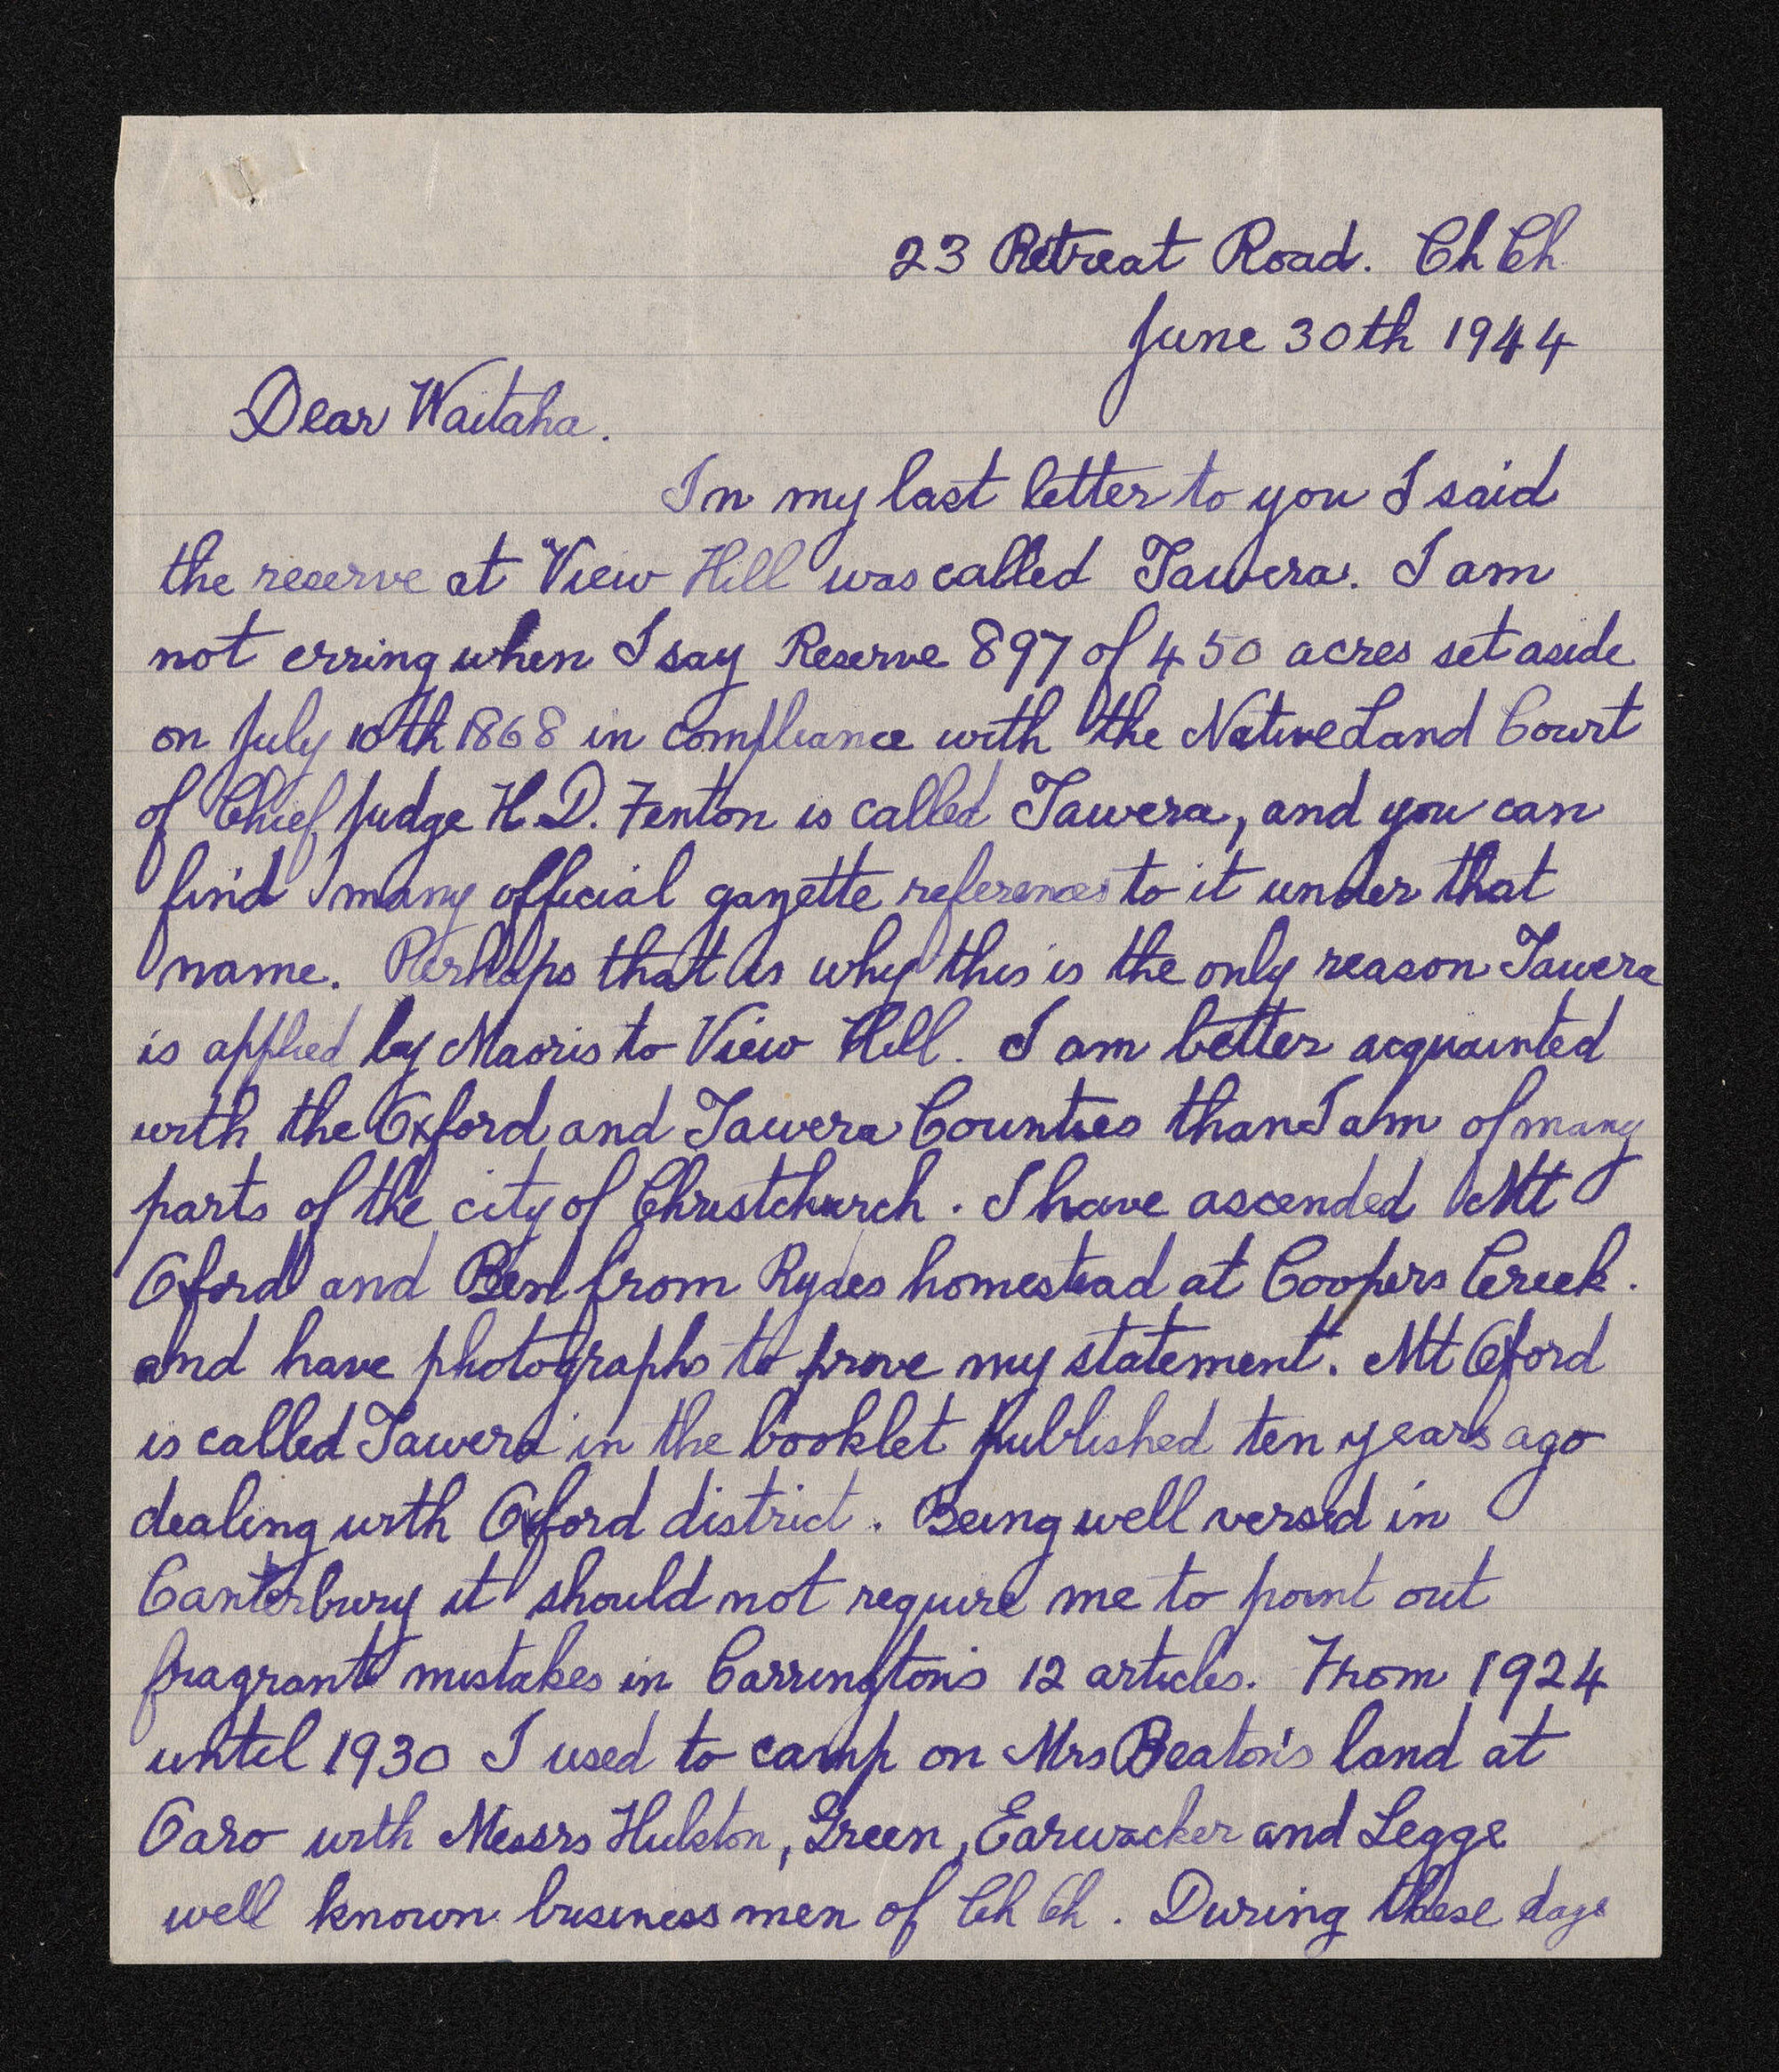 23 Retreat Road. Ch Ch
June 30th 1944
Dear Waitaha.
In my last letter to you I said
the reserve at View Hill was called Tawera. I am
not erring when I say Reserve 897 of 450 acres set aside
on July 10th 1868 in compliance with the Native Land Court
of Chief Judge H.D. Fenton is called Tawera, and you can
find many official gazette references to it under that
name. Perhaps that is why this is the only reason Tawera
is applied by Maoris to View Hill. I am better acquainted
with the Oxford and Tawera Counties than I am of many
parts of the city of Christchurch. I have ascended Mt
Oxford and Ben from Rydes homestead at Coopers Creek.
and have photographs to prove my statement. Mt Oxford
is called Tawera in the booklet published ten years ago
dealing with Oxford district. Being well versed in
Canterbury it should not require me to point out
fragrant mistakes in Carrington's 12 articles. From 1924
until 1930 I used to camp on Mrs Beaton's land at
Oaro with Messrs Hulston, Green, Earwacker and Legge
well known business men of Ch Ch. During these days